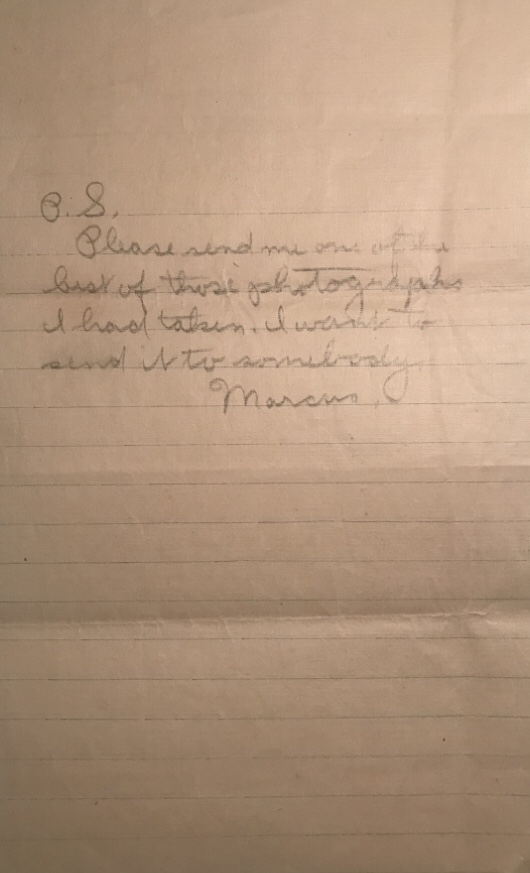 P. S.
Please send me one of the
best of those photographs
I had taken. I want to
send it to somebody
Marcus.